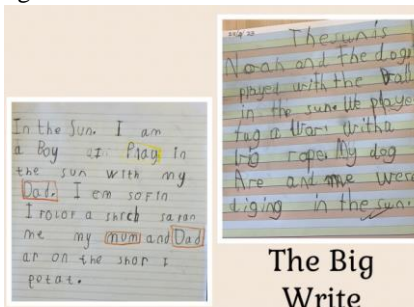 In the Sun. I am
a Boy Play in
the sun with my
Dad. I em sofin
I rolor a shich saran
me my mum and Dad
ar on the shor I
potat.
The sun is
Noah and the dog
played with the Ball
in the sun. We playe
tug a War. With a
big rope. My dog
Are and me were
diging in the sun.
The Big
Write